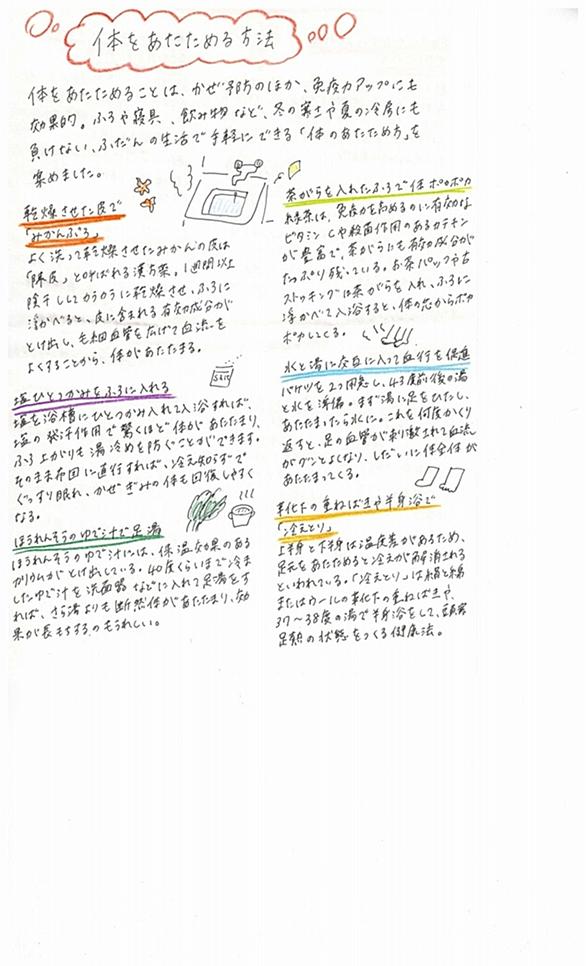 体をあたためる方法
体をあたためることは、かぜ予防のほか、免疫力アップにも
効果的。ふろや寝具、飲み物など、冬の寒さや夏の冷房にも
負けない、ふだんの生活で手軽にできる「体のあたため方」を
集めました。
乾燥させた皮で
「みかんぶろ」
よく洗って乾燥させたみかんの皮は
「陳皮」と呼ばれる漢方薬。1週間以上
陰干ししてカラカラに乾燥させ、ふろに
浮かべると、皮に含まれる有効成分が
とけ出し、毛細血管を広げて血流を
よくすることから、体があたたまる。
SALT
塩ひとつかみをふろに入れる
塩を浴槽にひとつかみ入れて入浴すれば、
塩の発汗作用で驚くほど体があたたまり、
ふろ上がりも湯冷めを防ぐことができます。
そのまま布団に直行すれば、冷え知らずで
ぐっすり眠れ、かぜぎみの体も回復しやすく
なる。
ほうれんそうのゆで汁で足湯
ほうれんそうのゆで汁には、保温効果のある
カリウムがとけ出している。40度くらいまで冷ま
したゆで汁を洗面器などに入れて足湯をす
れば、さら湯よりも断然体があたたまり、効
果が長もちするのもうれしい。
茶がらを入れたふろで体ポカポカ
緑茶は、免疫力を高めるのに有効な
ビタミンCや殺菌作用のあるカテキン
が豊富で、茶がらにも有効成分が
たっぷり残っている。お茶パックや古
ストッキングに茶がらを入れ、ふろに
浮かべて入浴すると、体の芯からポカ
ポカしてくる。
水と湯に交互に入って血行を促進
バケツを2つ用意し、43度前後の湯
と水を準備。まず湯に足をひたし、
あたたまったら水に。これを何度かくり
返すと、足の血管が刺激されて血流
がグンとよくなり、しだいに体全体が
あたたまってくる。
靴下の重ねばきや半身浴で
「冷えとり」
上半身と下半身は温度差があるため、
足元をあたためると冷えが解消される
といわれている。「冷えとり」は絹と綿
またはウールの靴下の重ねばきや、
37〜38度の湯で半身浴をして、頭寒
足熱の状態をつくる健康法。